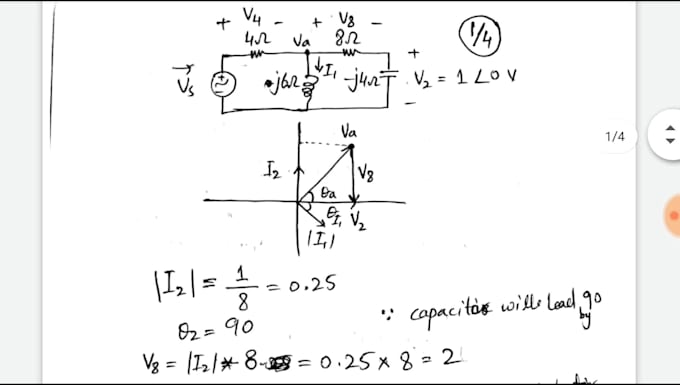 + V4 - + V8 - 1/4
4Ω Va 8Ω
Vs j6Ω ↓I1 -j4Ω + V2 = 1∠0 V -
1/4
Va
I2 V8
θa
θI1 V2
|I1|
|I2| = 1/8 = 0.25
∵ capacitor will lead by 90
θ2 = 90
V8 = |I2| * 8 = 0.25 × 8 = 2